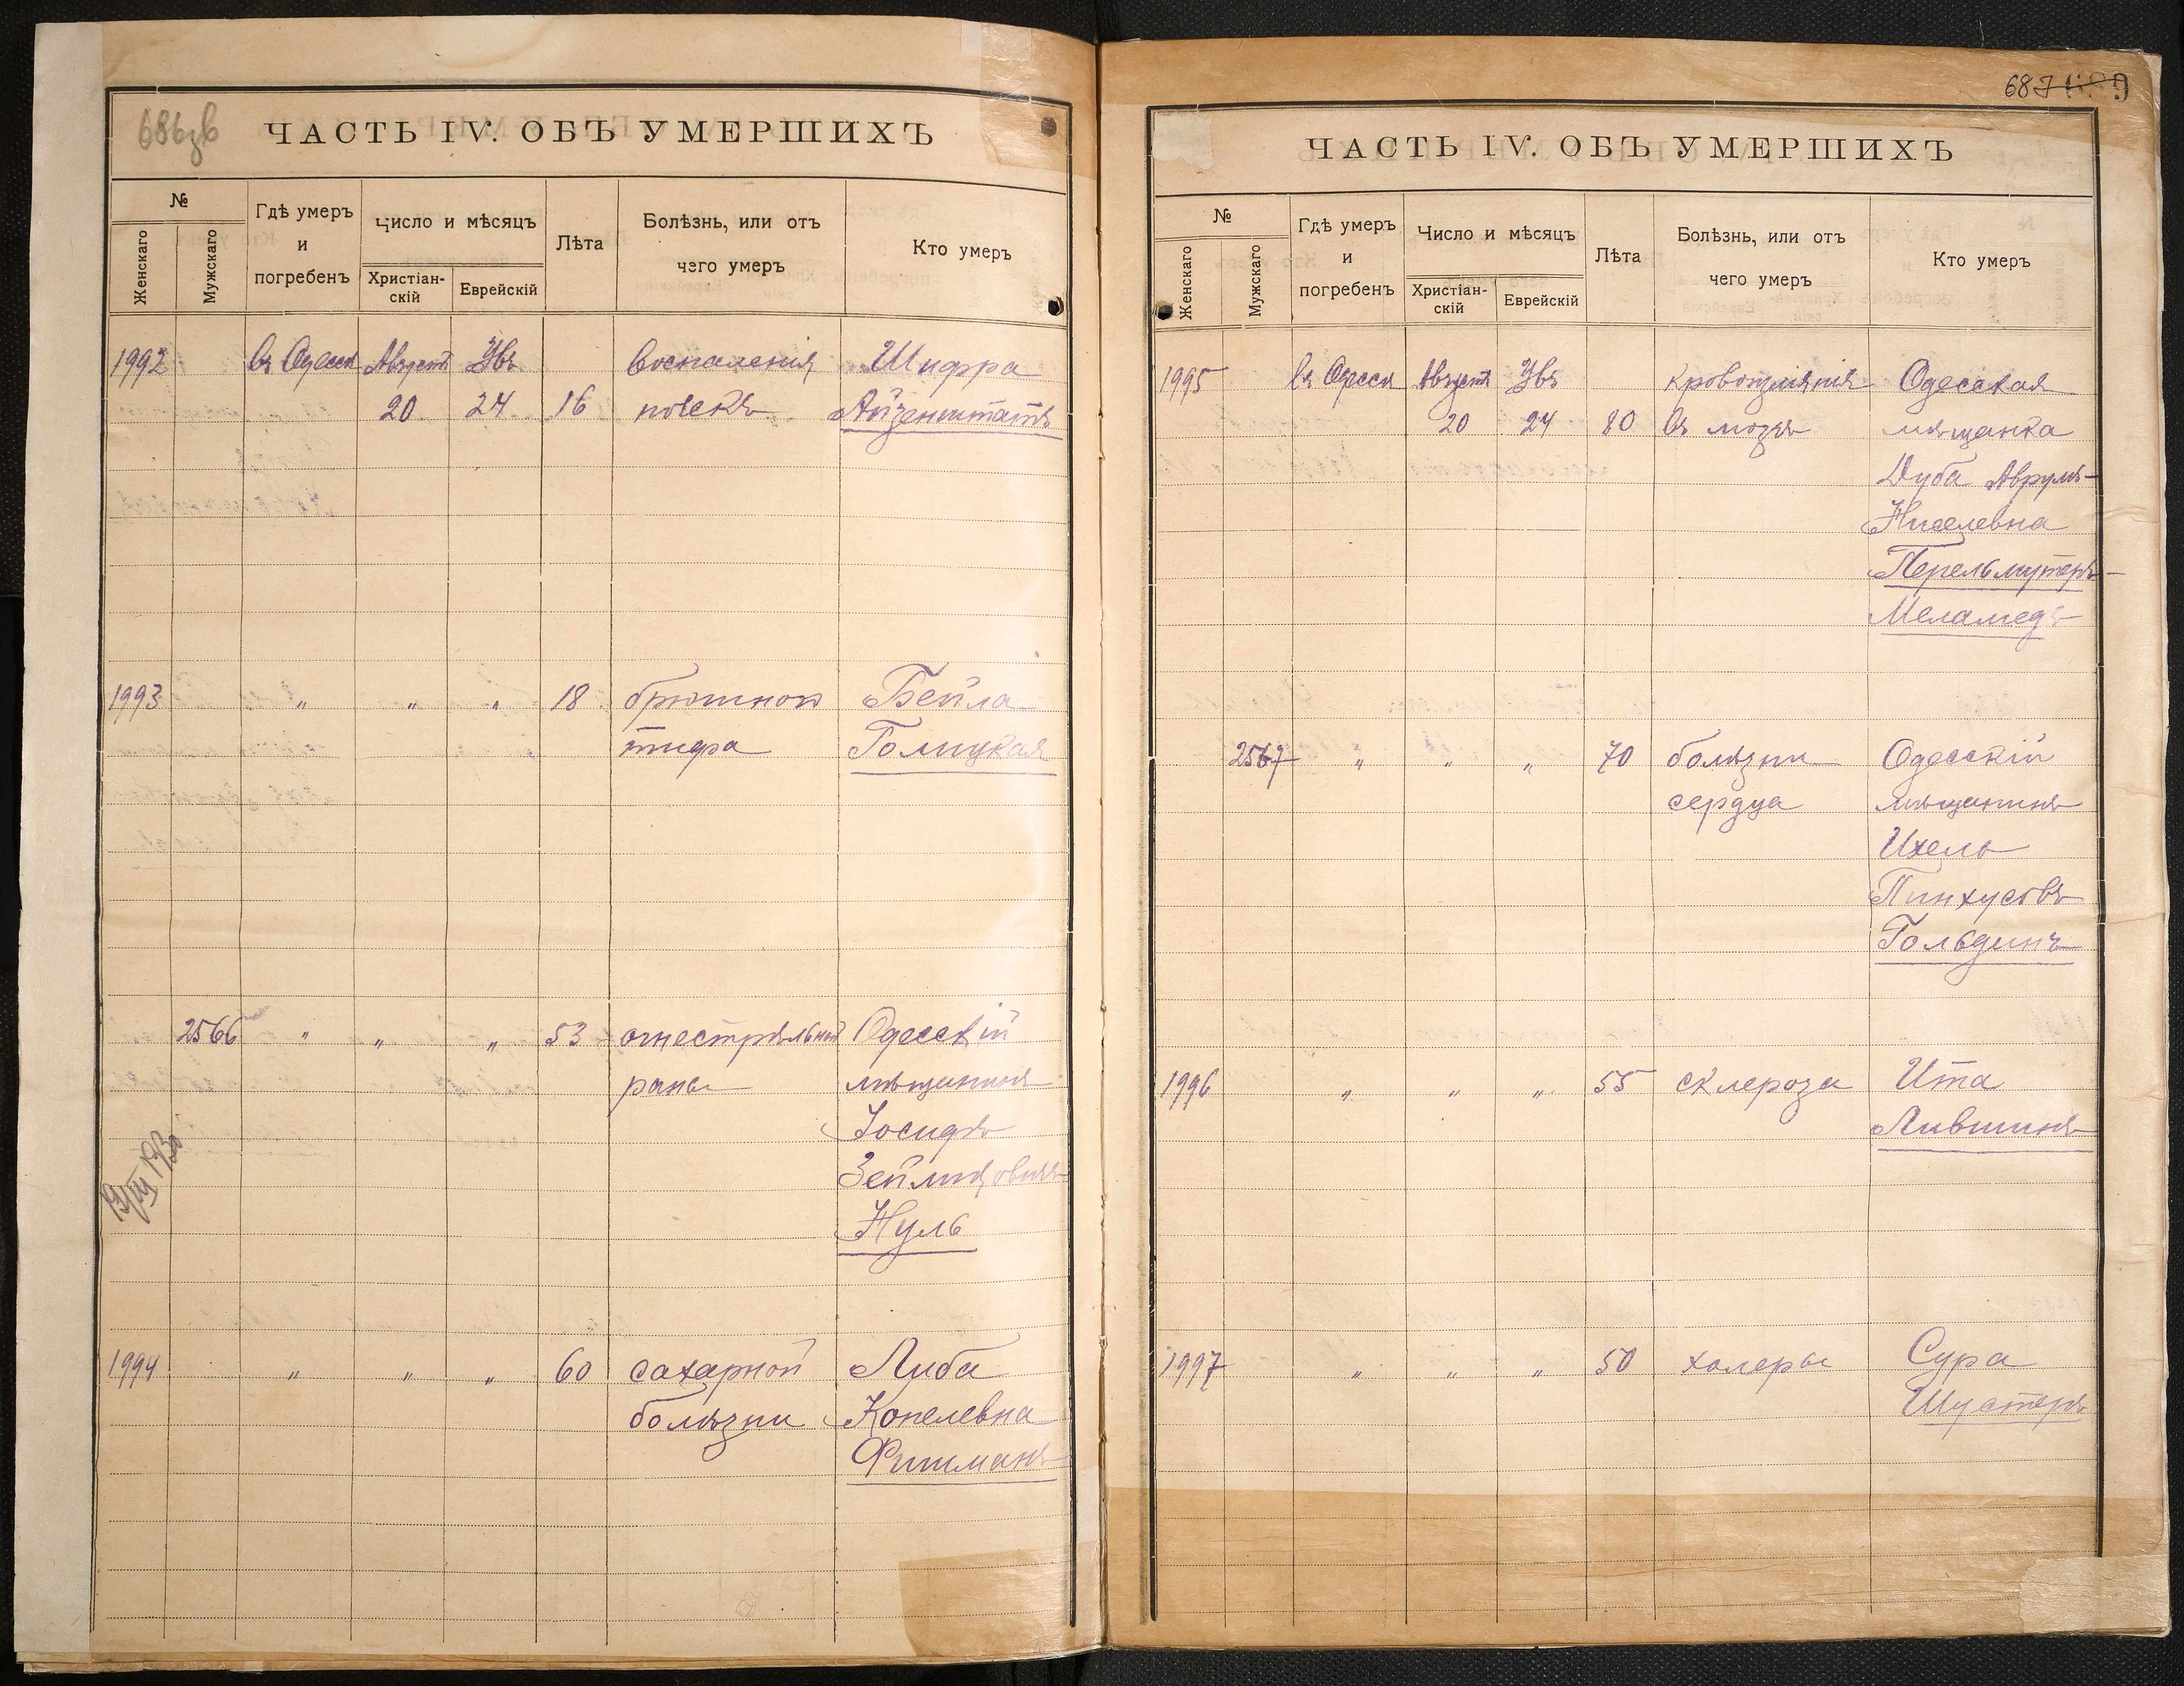 686зв
ЧАСТЬ IV. ОБЪ УМЕРШИХЪ
№
Женскаго
Мужскаго
Гдѣ умеръ
и
погребенъ
Число и мѣсяцъ
Христіан-
скій
Еврейскій
Лѣта
Болѣзнь, или отъ
чего умеръ
Кто умеръ
1992 въ Одессѣ Августъ Убъ воспаленія Шифра
20 24 16 почекъ Айзенштатъ
1993 " " " 18 брюшного Бейла
тифа Голицкая
2566 " " " 53 огнестрѣльной Одесскій
раны мѣщанинъ
Іосифъ
Нуль
19/VIII 1930
1994 " " " 60 сахарной Либа
болѣзни Копелевна
Фишманъ
687
ЧАСТЬ IV. ОБЪ УМЕРШИХЪ
№
Женскаго
Мужскаго
Гдѣ умеръ
и
погребенъ
Число и мѣсяцъ
Христіан-
скій
Еврейскій
Лѣта
Болѣзнь, или отъ
чего умеръ
Кто умеръ
1995 въ Одессѣ Августъ Убъ кровоизліянія Одесская
20 24 80 въ мозгъ мѣщанка
Дуба Аврумъ-
Ниселевна
Перельмутеръ-
Меламедъ
2567 " " " 70 болѣзни Одесскій
сердца мѣщанинъ
Ихель
Пинхусовъ
Гольдинъ
1996 " " " 55 склероза Ита
Лившинъ
1997 " " " 50 холеры Сура
Шустеръ